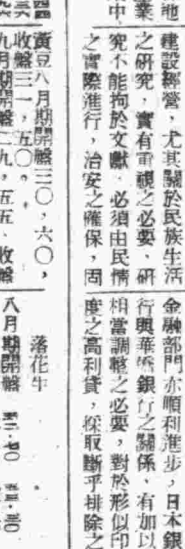 地
業
中
建設經營，尤其關於民族生活
之研究，實有重視之必要，研
究不能拘於文獻，必須由民情
之實際進行，治安之確保，固
金融部門亦順利進步，日本銀
行與華僑銀行之關係，有加以
相當調整之必要，對於形似印
度之高利貸，採取斷乎排除之
黃豆八月期開盤三〇，六〇，
收盤三一，五〇。
九月期開盤二九，五五，收盤
落花生
八月期開盤